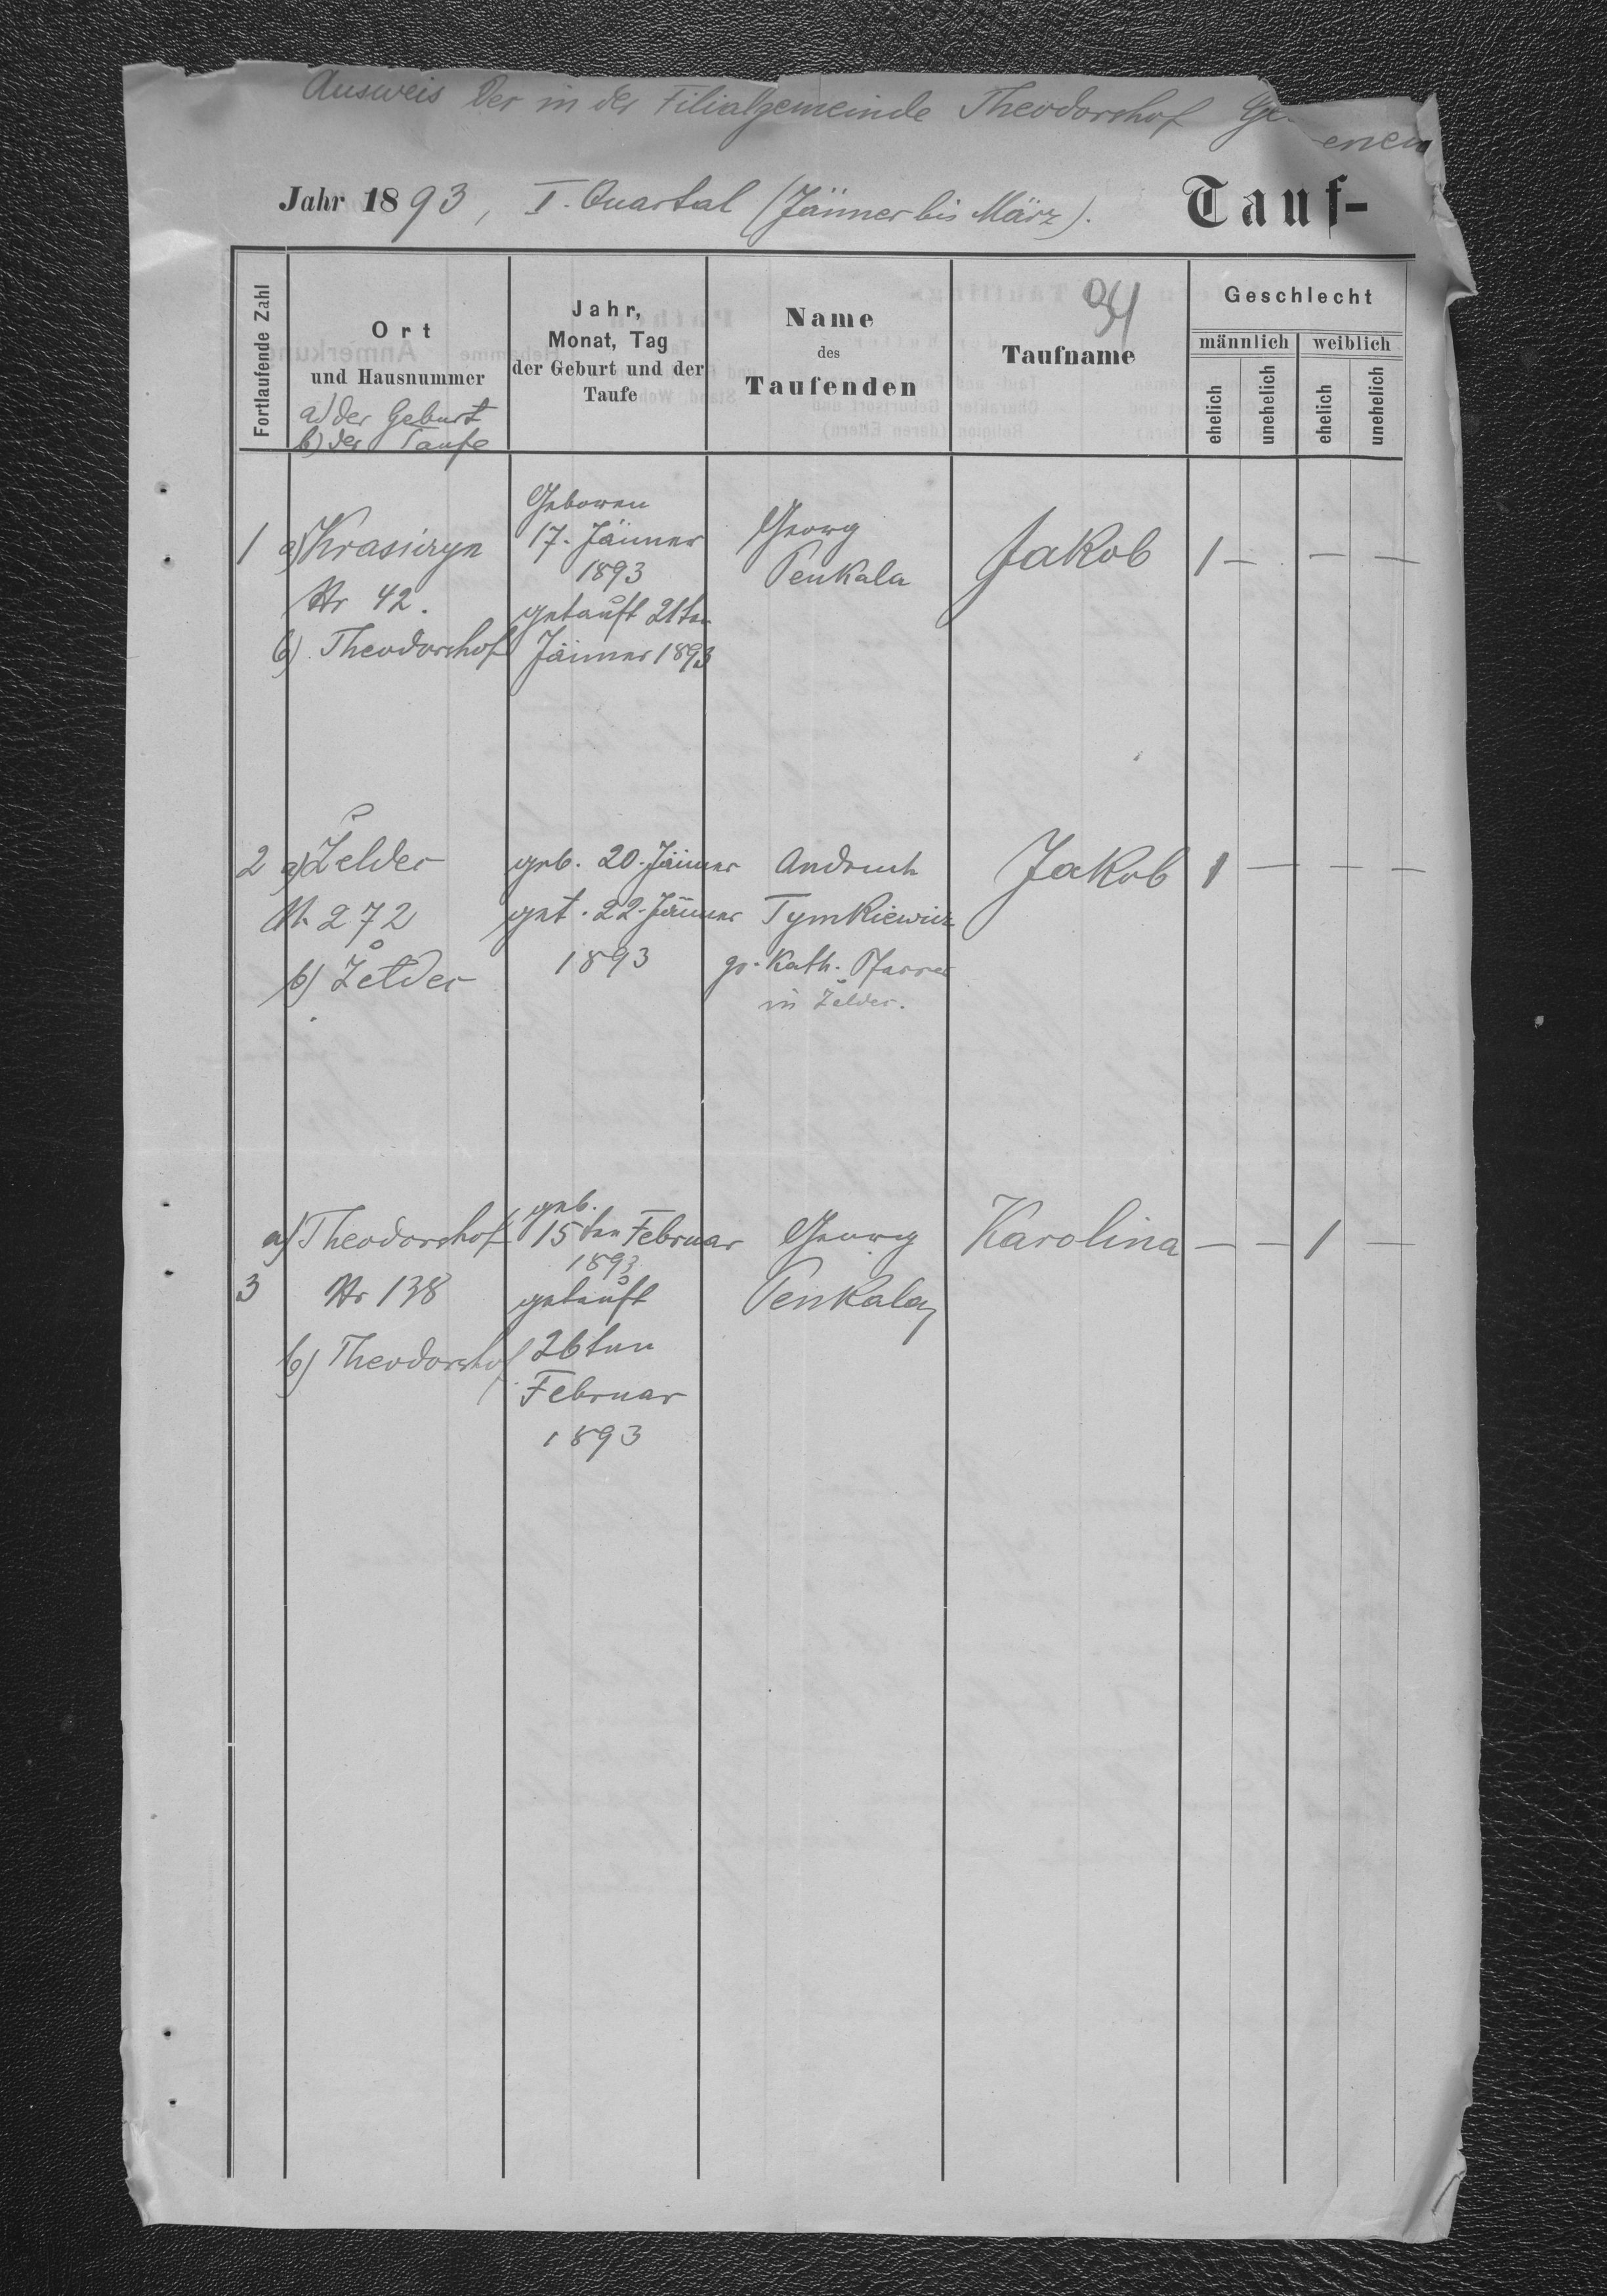 Ausweis der in der Filialgemeinde Theodorshof
enen
Jahr 1893, I. Quartal (Jänner bis März).
Tauf-
Fortlaufende Zahl
Ort
und Hausnummer
a) der Geburt
b) der Taufe
Jahr,
Monat, Tag
der Geburt und der
Taufe
Name
des
Taufenden
34
Taufname
Geschlecht
männlich
weiblich
ehelich
unehelich
ehelich
unehelich
1
a) Krasiczyn
Nr 42.
b) Theodorshof
Geboren
17. Jänner
1893
getauft 21ten
Jänner 1893
Georg
Penkala
Jakob
1 – – –
2
a) Želdec
N. 272
b) Želdec
geb. 20. Jänner
get. 22. Jänner
1893
Andruch
Tymkiewicz
gr. Kath. Pfarrer
in Želdec.
Jakob
1 – – –
3
a) Theodorshof
Nr 138
b) Theodorshof
geb.
15ten Februar
1893
getauft
26ten
Februar
1893
Georg
Penkala
Karolina
– – 1 –